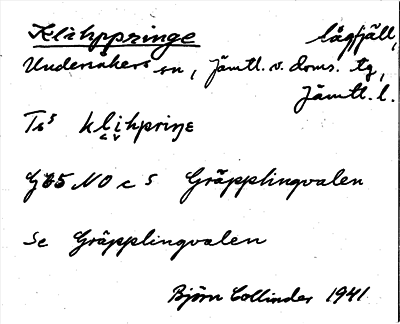 Klihppringe lågfjäll,
Undersåkers sn, Jämtl. v. doms. tg,
Jämtl. l.
klihpriŋε
G65 NO c S Gräpplingvalen
Se Gräpplingvalen
Björn Collinder 1941